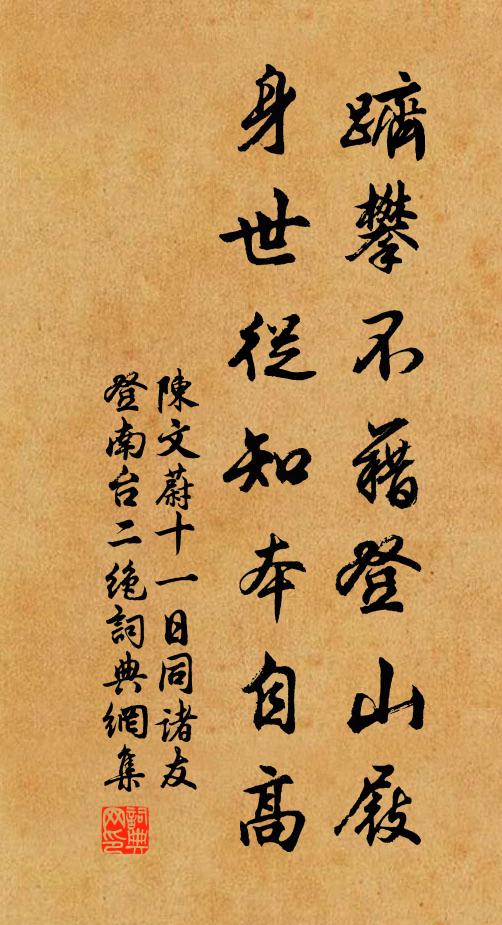 躋攀不藉登山屐
身世從知本自高
陳文蔚十一日同諸友
登南台二絶詞典網集
詞典网印